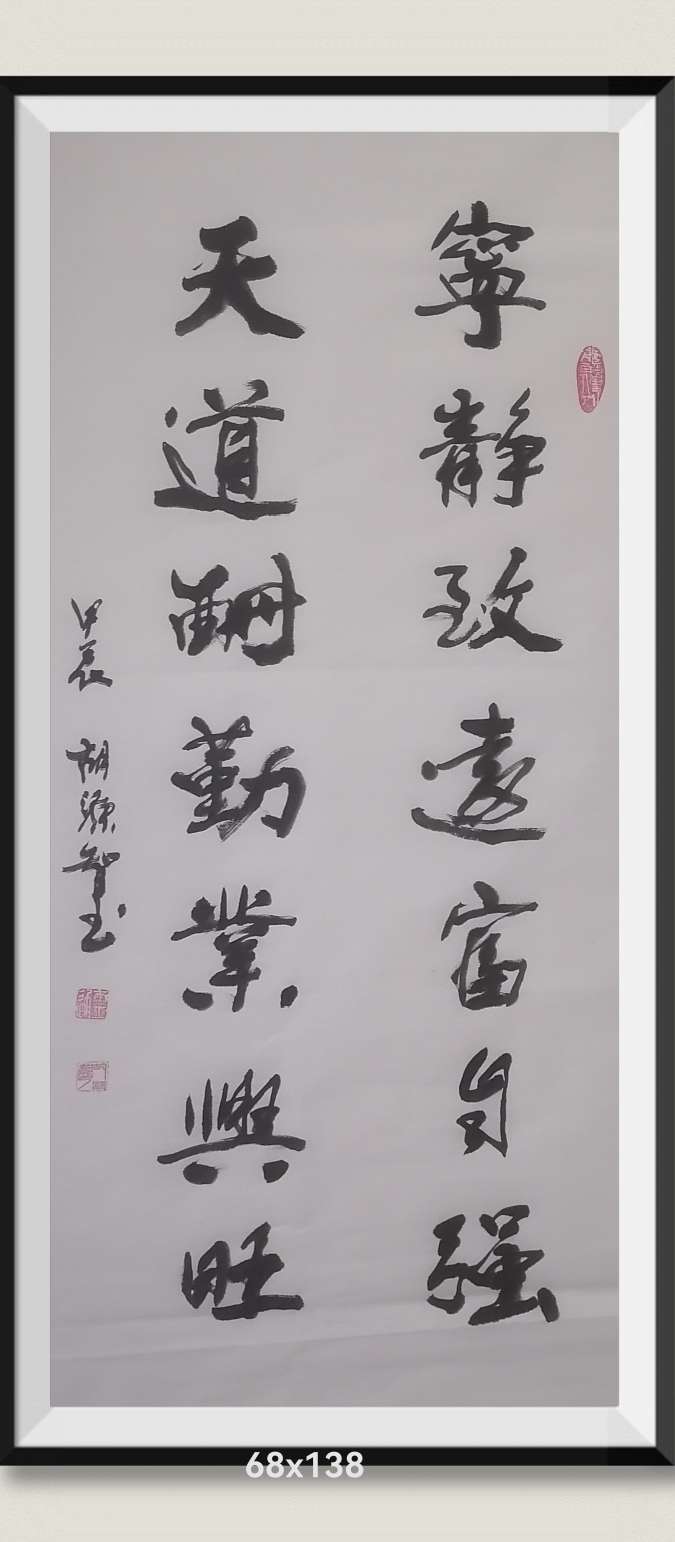 寧静致遠富自强
天道酬勤業興旺
甲辰 胡源智
68x138